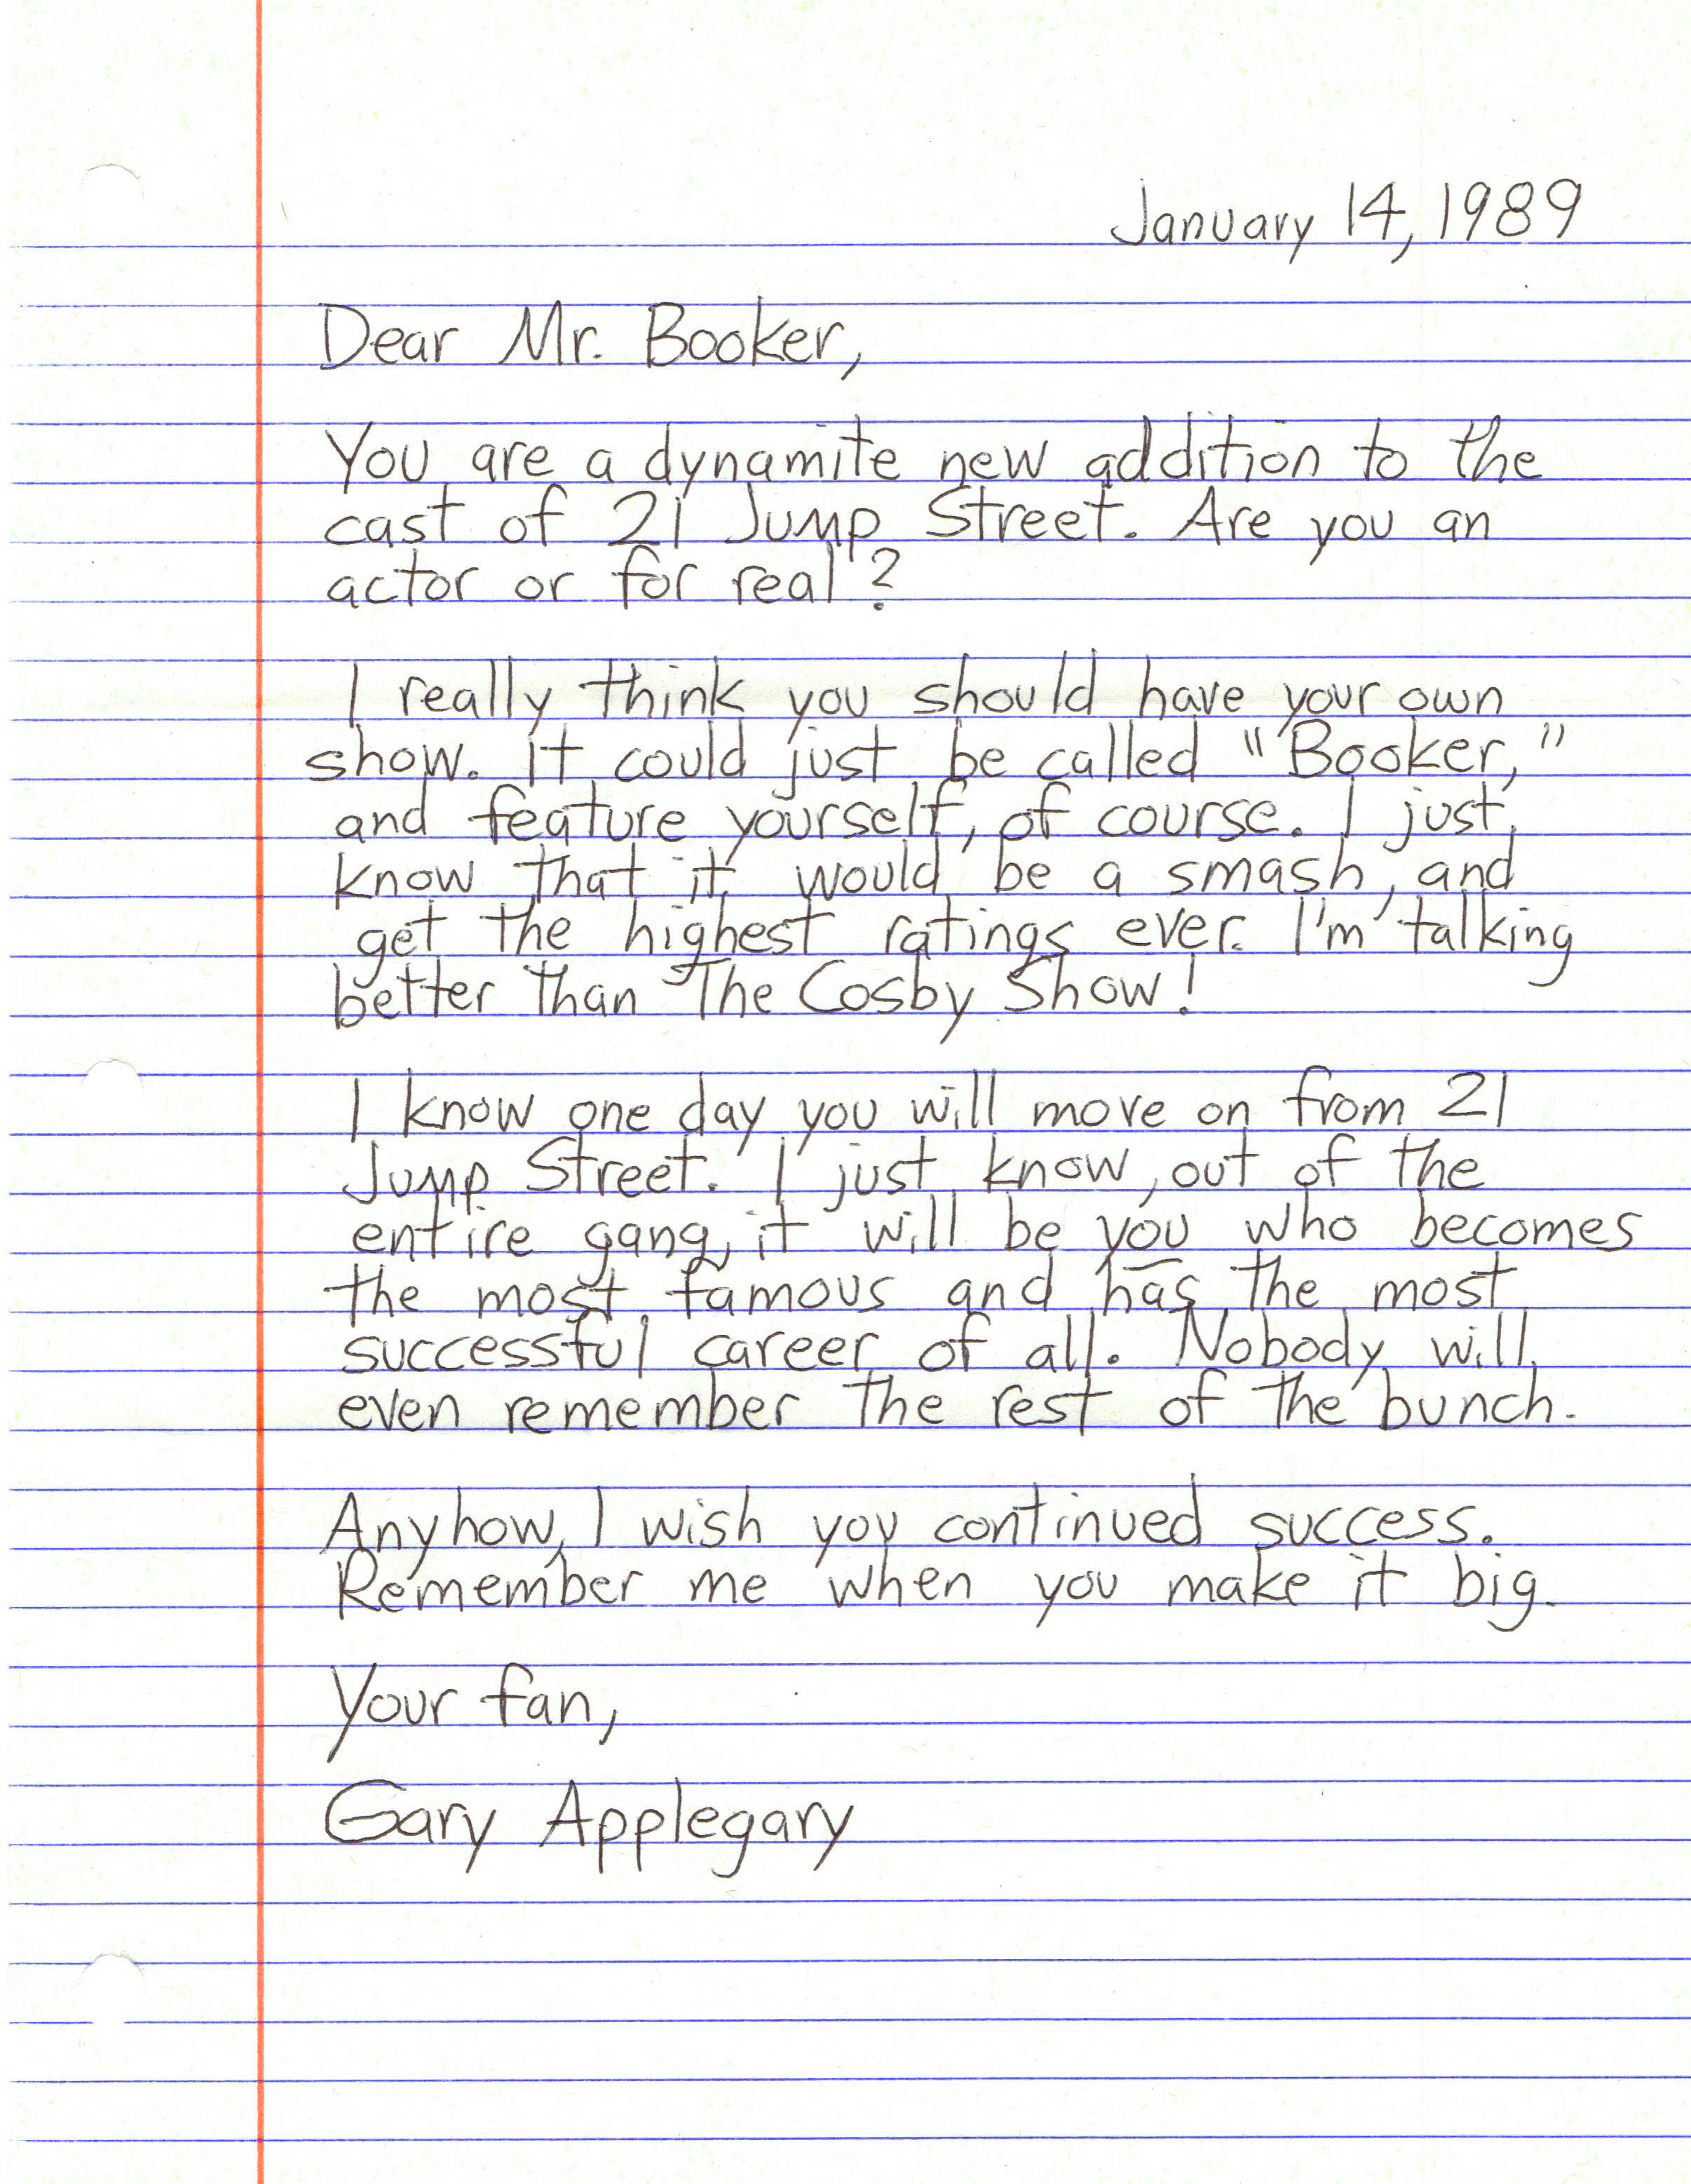 January 14, 1989
Dear Mr. Booker,
You are a dynamite new addition to the
cast of 21 Jump Street. Are you an
actor or for real?
I really think you should have your own
show. It could just be called "Booker,"
and feature yourself, of course. I just
know that it would be a smash, and
get the highest ratings ever. I'm talking
better than The Cosby Show!
I know one day you will move on from 21
Jump Street. I just know, out of the
entire gang, it will be you who becomes
the most famous and has the most
successful career of all. Nobody will
even remember the rest of the bunch.
Anyhow, I wish you continued success.
Remember me when you make it big.
Your fan,
Gary Applegary